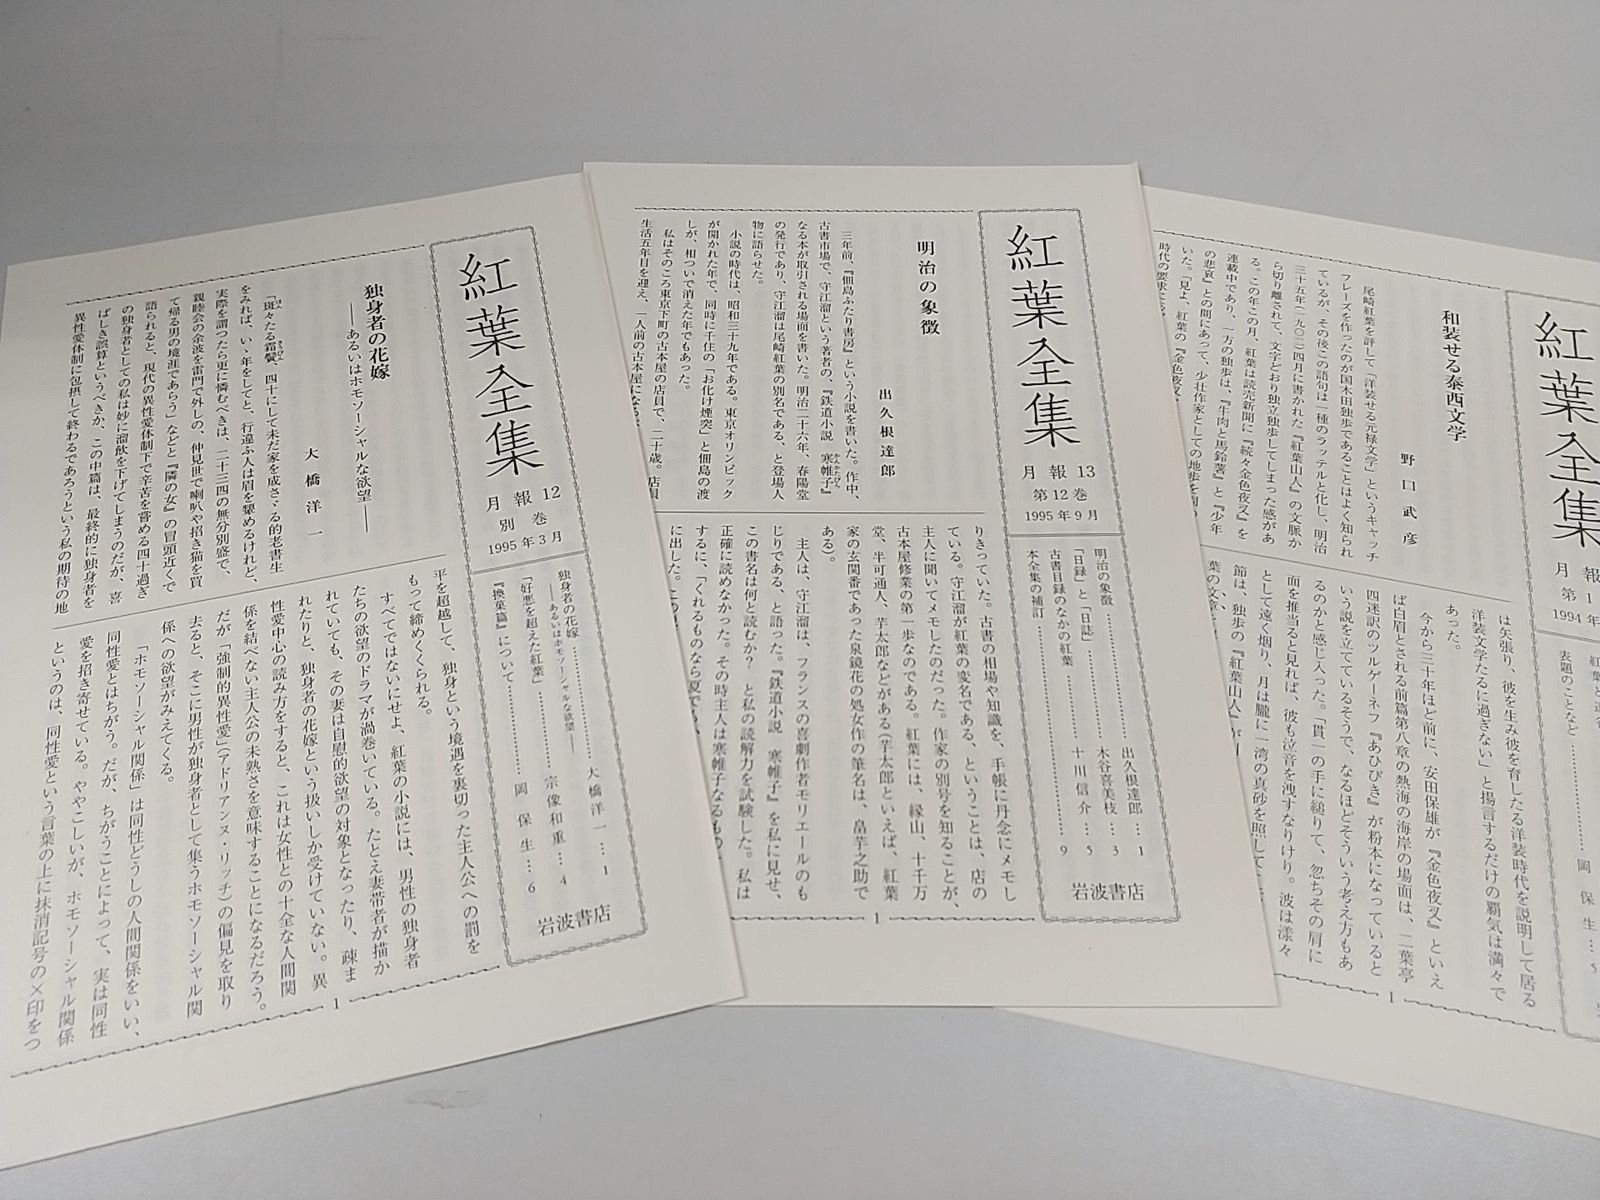 紅葉全集
月報12
別巻
1995年3月
独身者の花嫁
――あるいはホモソーシャルな欲望――
大橋洋一
「斑々たる霜鬢、四十にして未だ家を成さゞる的老書生
をみれば、い丶年をしてと、行違ふ人は眉を顰めるけれど、
実際を謂つたら更に憐むべきは、二十三四の無分別盛で、
親睦会の余波を雷門で外しの、仲見世で喇叭や招き猫を買
て帰る男の境涯であらう」などと『隣の女』の冒頭近くで
語られると、現代の異性愛体制下で辛苦を嘗める四十過ぎ
の独身者としての私は妙に溜飲を下げてしまうのだが、喜
ばしき誤算というべきか、この中篇は、最終的に独身者を
異性愛体制に包摂して終わるであろうという私の期待の地
平を超越して、独身という境遇を裏切った主人公への罰を
もって締めくくられる。
すべてではないにせよ、紅葉の小説には、男性の独身者
たちの欲望のドラマが渦巻いている。たとえ妻帯者が描か
れていても、その妻は自慰的欲望の対象となったり、疎ま
れたりと、独身者の花嫁という扱いしか受けていない。異
性愛中心の読み方をすると、これは女性との十全な人間関
係を結べない主人公の未熟さを意味することになるだろう。
だが「強制的異性愛」(アドリアンヌ・リッチ)の偏見を取り
去ると、そこに男性が独身者として集うホモソーシャル関
係への欲望がみえてくる。
「ホモソーシャル関係」は同性どうしの人間関係をいい、
同性愛とはちがう。だが、ちがうことによって、実は同性
愛を招き寄せている。ややこしいが、ホモソーシャル関係
というのは、同性愛という言葉の上に抹消記号の×印をつ
独身者の花嫁
――あるいはホモソーシャルな欲望――……大橋洋一…1
「好悪を超えた紅葉」……宗像和重…4
『換菓篇』について……岡保生…6
岩波書店
1
紅葉全集
月報13
第12巻
1995年9月
明治の象徴
出久根達郎
三年前、『佃島ふたり書房』という小説を書いた。作中、
古書市場で、守江溜という著者の、『鉄道小説 寒帷子』
なる本が取引される場面を書いた。明治二十六年、春陽堂
の発行であり、守江溜は尾崎紅葉の別名である、と登場人
物に語らせた。
小説の時代は、昭和三十九年である。東京オリンピック
が開かれた年で、同時に千住の「お化け煙突」と佃島の渡
しが、相ついで消えた年でもあった。
私はそのころ東京下町の古本屋の店員で、二十歳。店員
生活五年目を迎え、一人前の古本屋になる
りきっていた。古書の相場や知識を、手帳に丹念にメモし
ている。守江溜が紅葉の変名である、ということは、店の
主人に聞いてメモしたのだった。作家の別号を知ることが、
古本屋修業の第一歩なのである。紅葉には、縁山、十千万
堂、半可通人、芋太郎などがある(芋太郎といえば、紅葉
家の玄関番であった泉鏡花の処女作の筆名は、畠芋之助で
ある)。
主人は、守江溜は、フランスの喜劇作者モリエールのも
じりである、と語った。『鉄道小説 寒帷子』を私に見せ、
この書名は何と読むか? と私の読解力を試験した。私は
正確に読めなかった。その時主人は寒帷子なるもの
するに、「くれるものなら夏でも
に出した。
明治の象徴……出久根達郎…1
「日録」と「日誌」……木谷喜美枝…3
古書目録のなかの紅葉……十川信介…5
本全集の補訂……9
岩波書店
1
紅葉全集
月報1
第
1994年
和装せる泰西文学
野口武彦
尾崎紅葉を評して「洋装せる元禄文学」というキャッチ
フレーズを作ったのが国木田独歩であることはよく知られ
ているが、その後この語句は一種のラッテルと化し、明治
三十五年(一九〇二)四月に書かれた『紅葉山人』の文脈か
ら切り離されて、文字どおり独立独歩してしまった感があ
る。この年この月、紅葉は読売新聞に『続々金色夜叉』を
連載中であり、一方の独歩は、『牛肉と馬鈴薯』と『少年
の悲哀』との間にあって、少壮作家としての地歩を
いた。「見よ、紅葉の『金色夜叉』
時代の要求に
は矢張り、彼を生み彼を育したる洋装時代を説明して居る
洋装文学たるに過ぎない」と揚言するだけの覇気は満々で
あった。
今から三十年ほど前に、安田保雄が『金色夜叉』といえ
ば白眉とされる前篇第八章の熱海の海岸の場面は、二葉亭
四迷訳のツルゲーネフ『あひびき』が粉本になっていると
いう説を立てているそうで、なるほどそういう考え方もあ
るのかと感じ入った。「貫一の手に縋りて、忽ちその肩に
面を推当ると見れば、彼も泣音を洩すなりけり。波は漾々
として遠く烟り、月は朧に一湾の真砂を照して
節は、独歩の『紅葉山人』が
葉の文章を
表題のことなど……岡保生…5
1